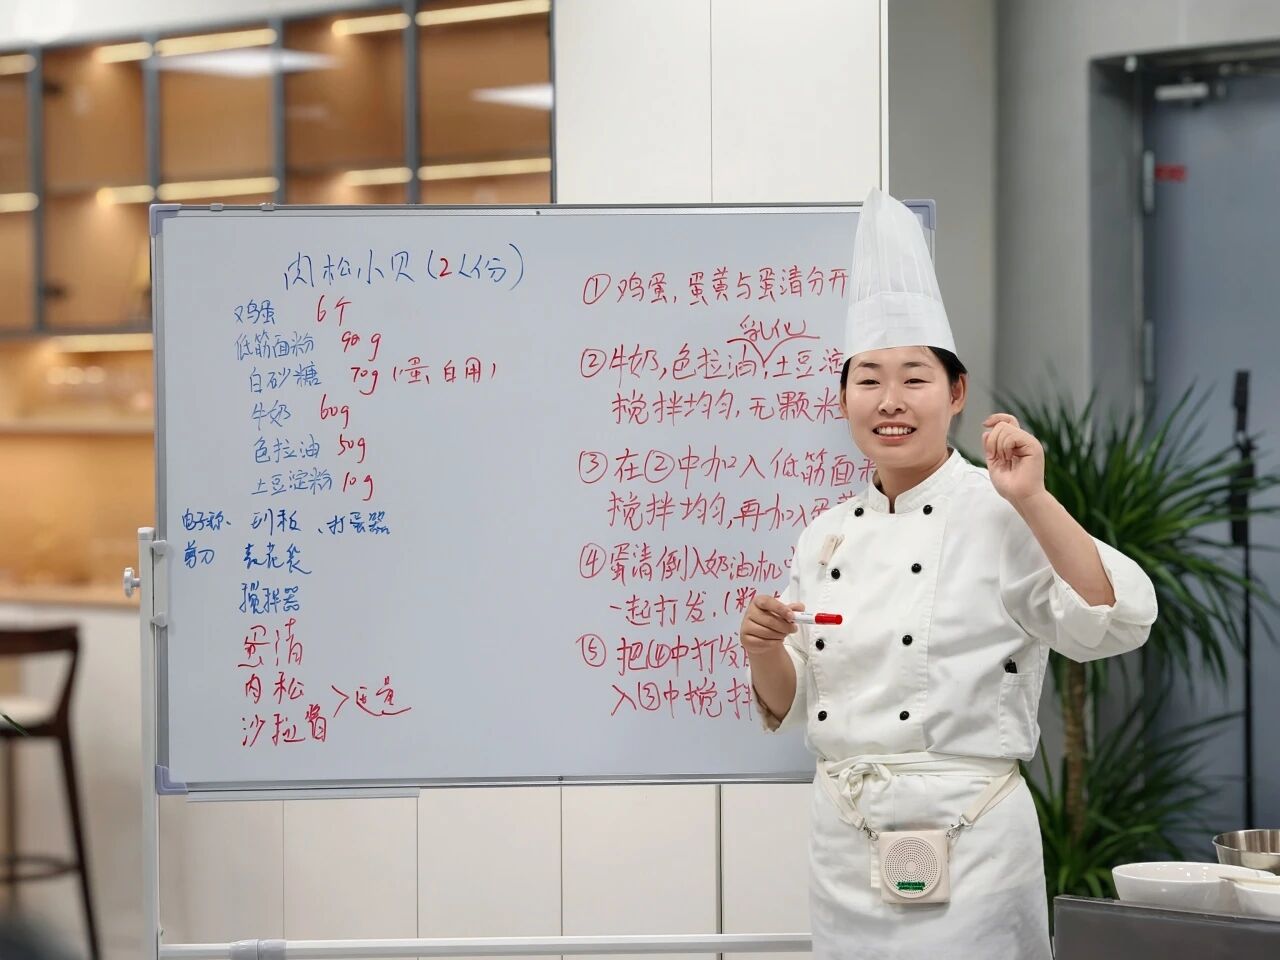 肉松小贝(2人份)
鸡蛋 6个
低筋面粉 90g
白砂糖 70g(蛋白用)
牛奶 60g
色拉油 50g
土豆淀粉 10g
电子称、刮板、打蛋器
剪刀 裱花袋
搅拌器
蛋清
肉松
沙拉酱 >适量
①鸡蛋,蛋黄与蛋清分开
乳化
②牛奶,色拉油,土豆淀
搅拌均匀,无颗粒
③在②中加入低筋面粉
搅拌均匀,再加入蛋黄
④蛋清倒入奶油机
一起打发.(
⑤把④中打发
入③中搅拌